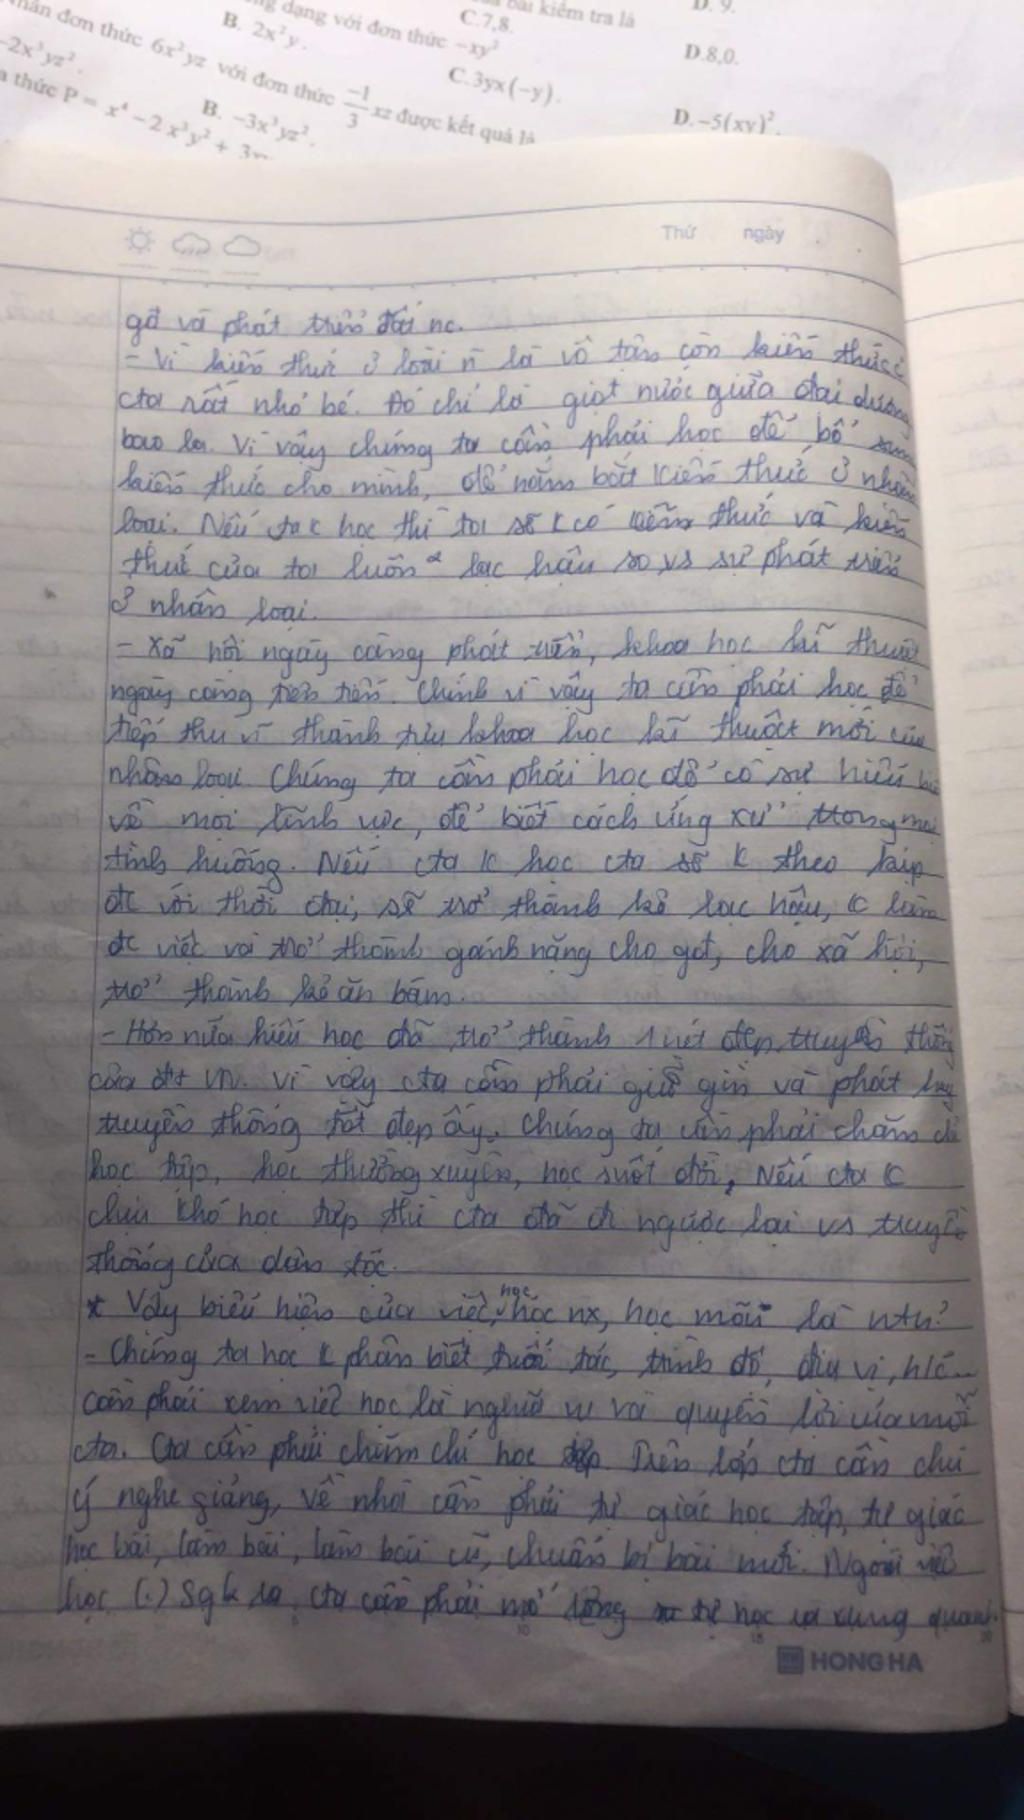 bài kiểm tra là
D. 9.
dạng với đơn thức -xy²
C.7,8.
B. 2x²y.
D.8,0.
nhân đơn thức 6x²yz với đơn thức -1/3 xz được kết quả là
C.3yx(-y).
-2x³yz².
B. -3x³yz².
D.-5(xy)².
thức P = x⁴ - 2x³y² + 3
Thứ ngày
gđ và phát triển đất nc.
- Vì kiến thức ở loài là vô tận còn kiến thức
cta rất nhỏ bé. Đó chỉ là giọt nước giữa đại dương
bao la. Vì vậy chúng ta cần phải học để bổ sung
kiến thức cho mình, để nắm bắt kiến thức nhân
loại. Nếu ta k học thì ta sẽ k có kiến thức và kiến
thức của ta luôn lạc hậu so vs sự phát triển
nhân loại.
- Xã hội ngày càng phát triển, khoa học kĩ thuật
ngày càng tiên tiến. Chính vì vậy ta cần phải học để
tiếp thu thành tựu khoa học kĩ thuật mới của
nhân loại. Chúng ta cần phải học để có sự hiểu
về mọi lĩnh vực, để biết cách ứng xử trong mọi
tình huống. Nếu cta k học cta sẽ k theo kịp
đc với thời đại, sẽ trở thành kẻ lạc hậu, k làm
đc việc và trở thành gánh nặng cho gđ, cho xã hội,
trở thành kẻ ăn bám.
- Hơn nữa hiếu học đã trở thành 1 nét đẹp truyền thống
của dt VN. Vì vậy cta cần phải giữ gìn và phát huy
truyền thống tốt đẹp ấy. Chúng ta cần phải chăm chỉ
học tập, học thường xuyên, học suốt đời, Nếu cta k
chịu khó học tập thì cta đã đi ngược lại vs truyền
thống của dân tộc.
* Vậy biểu hiện của việc học, học nx, học mãi là ntn?
- Chúng ta học k phân biệt tuổi tác, trình độ, địa vị,
cần phải xem việc học là nghĩa vụ và quyền lợi của mỗi
cta. Cta cần phải chăm chỉ học tập. Trên lớp cta cần chú
ý nghe giảng, về nhà cần phải tự giác học tập, tự giác
học bài, làm bài, làm bài cũ, chuẩn bị bài mới. Ngoài việc
học (.) Sgk ra, cta cần phải mở rộng tự học xung quanh.
10
15
20
HONG HA